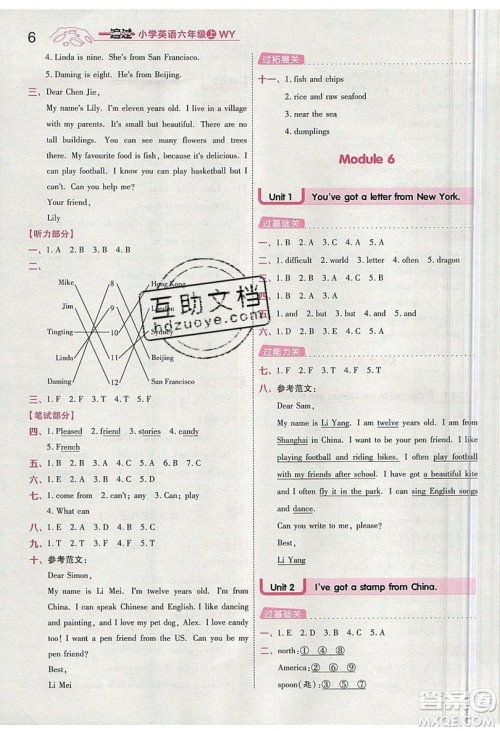 6 一遍过 小学英语六年级上 WY
4. Linda is nine. She's from San Francisco.
5. Daming is eight. He's from Beijing.
三、Dear Chen Jie,
My name's Lily. I'm eleven years old. I live in a village
with my parents. It's small but beautiful. There are many
trees. You can see many flowers and trees
there. My favourite food is fish, because it's delicious. I
can play basketball. I hope you can play basketball but I
can't play football. Can you help me?
Your friend,
Lily
【听力部分】
一、1. A 2. B 3. A 4. A 5. B
二、
Mike 8 Hong Kong
Jim 9 London
Tingting 10 Sydney
Linda 11 Beijing
Daming 12 San Francisco
三、1. F 2. F 3. T 4. T 5. F
【笔试部分】
四、1. Pleased 2. friend 3. stories 4. candy
5. French
五、1. B 2. B 3. A 4. B 5. A
六、1. E 2. D 3. A 4. B 5. C
七、1. come from 2. can't; any 3. Can; play
4. What can
八、1. B 2. D 3. A 4. C
九、1. T 2. F 3. T 4. T 5. F
十、参考范文:
Dear Simon,
My name is Li Mei. I like dancing and
painting. I can speak Chinese and English. I
want a pen friend from the US. Can you be
my pen friend?
Best,
Li Mei
过拓展关
十一、1. fish and chips
2. rice and raw seafood
3. near the sea
4. dumplings
Module 6
Unit 1 You've got a letter from New York.
过基础关
一、1. B 2. A 3. C 4. A 5. A
二、1. difficult 2. world 3. letter 4. often 5. dragon
三、1. B 2. A 3. A 4. B 5. B
五、1. and 2. of 3. to 4. in 5. with
六、1. D 2. C 3. A 4. B
过能力关
七、1. B 2. A 3. C 4. B 5. A
八、参考范文:
Dear Sam,
My name is Li Yang. I am twelve years old. I am from
Shanghai in China. I want to be your pen friend. I like
playing football and riding bikes. I often play football
with my friends after school. I have got a beautiful kite
and I often fly it in the park. I can sing English songs
and dance.
Can you be my pen friend? Please write to me soon.
Best,
Li Yang
Unit 2 I've got a stamp from China.
过基础关
一、1. E 2. D 3. B 4. C 5. A
二、north: ① ④ ⑨
America: ② ⑥ ⑧
spoon(匙): ③ ⑤ ⑦
互助文档
hdzuoye.com
答案圈
MXQE.COM